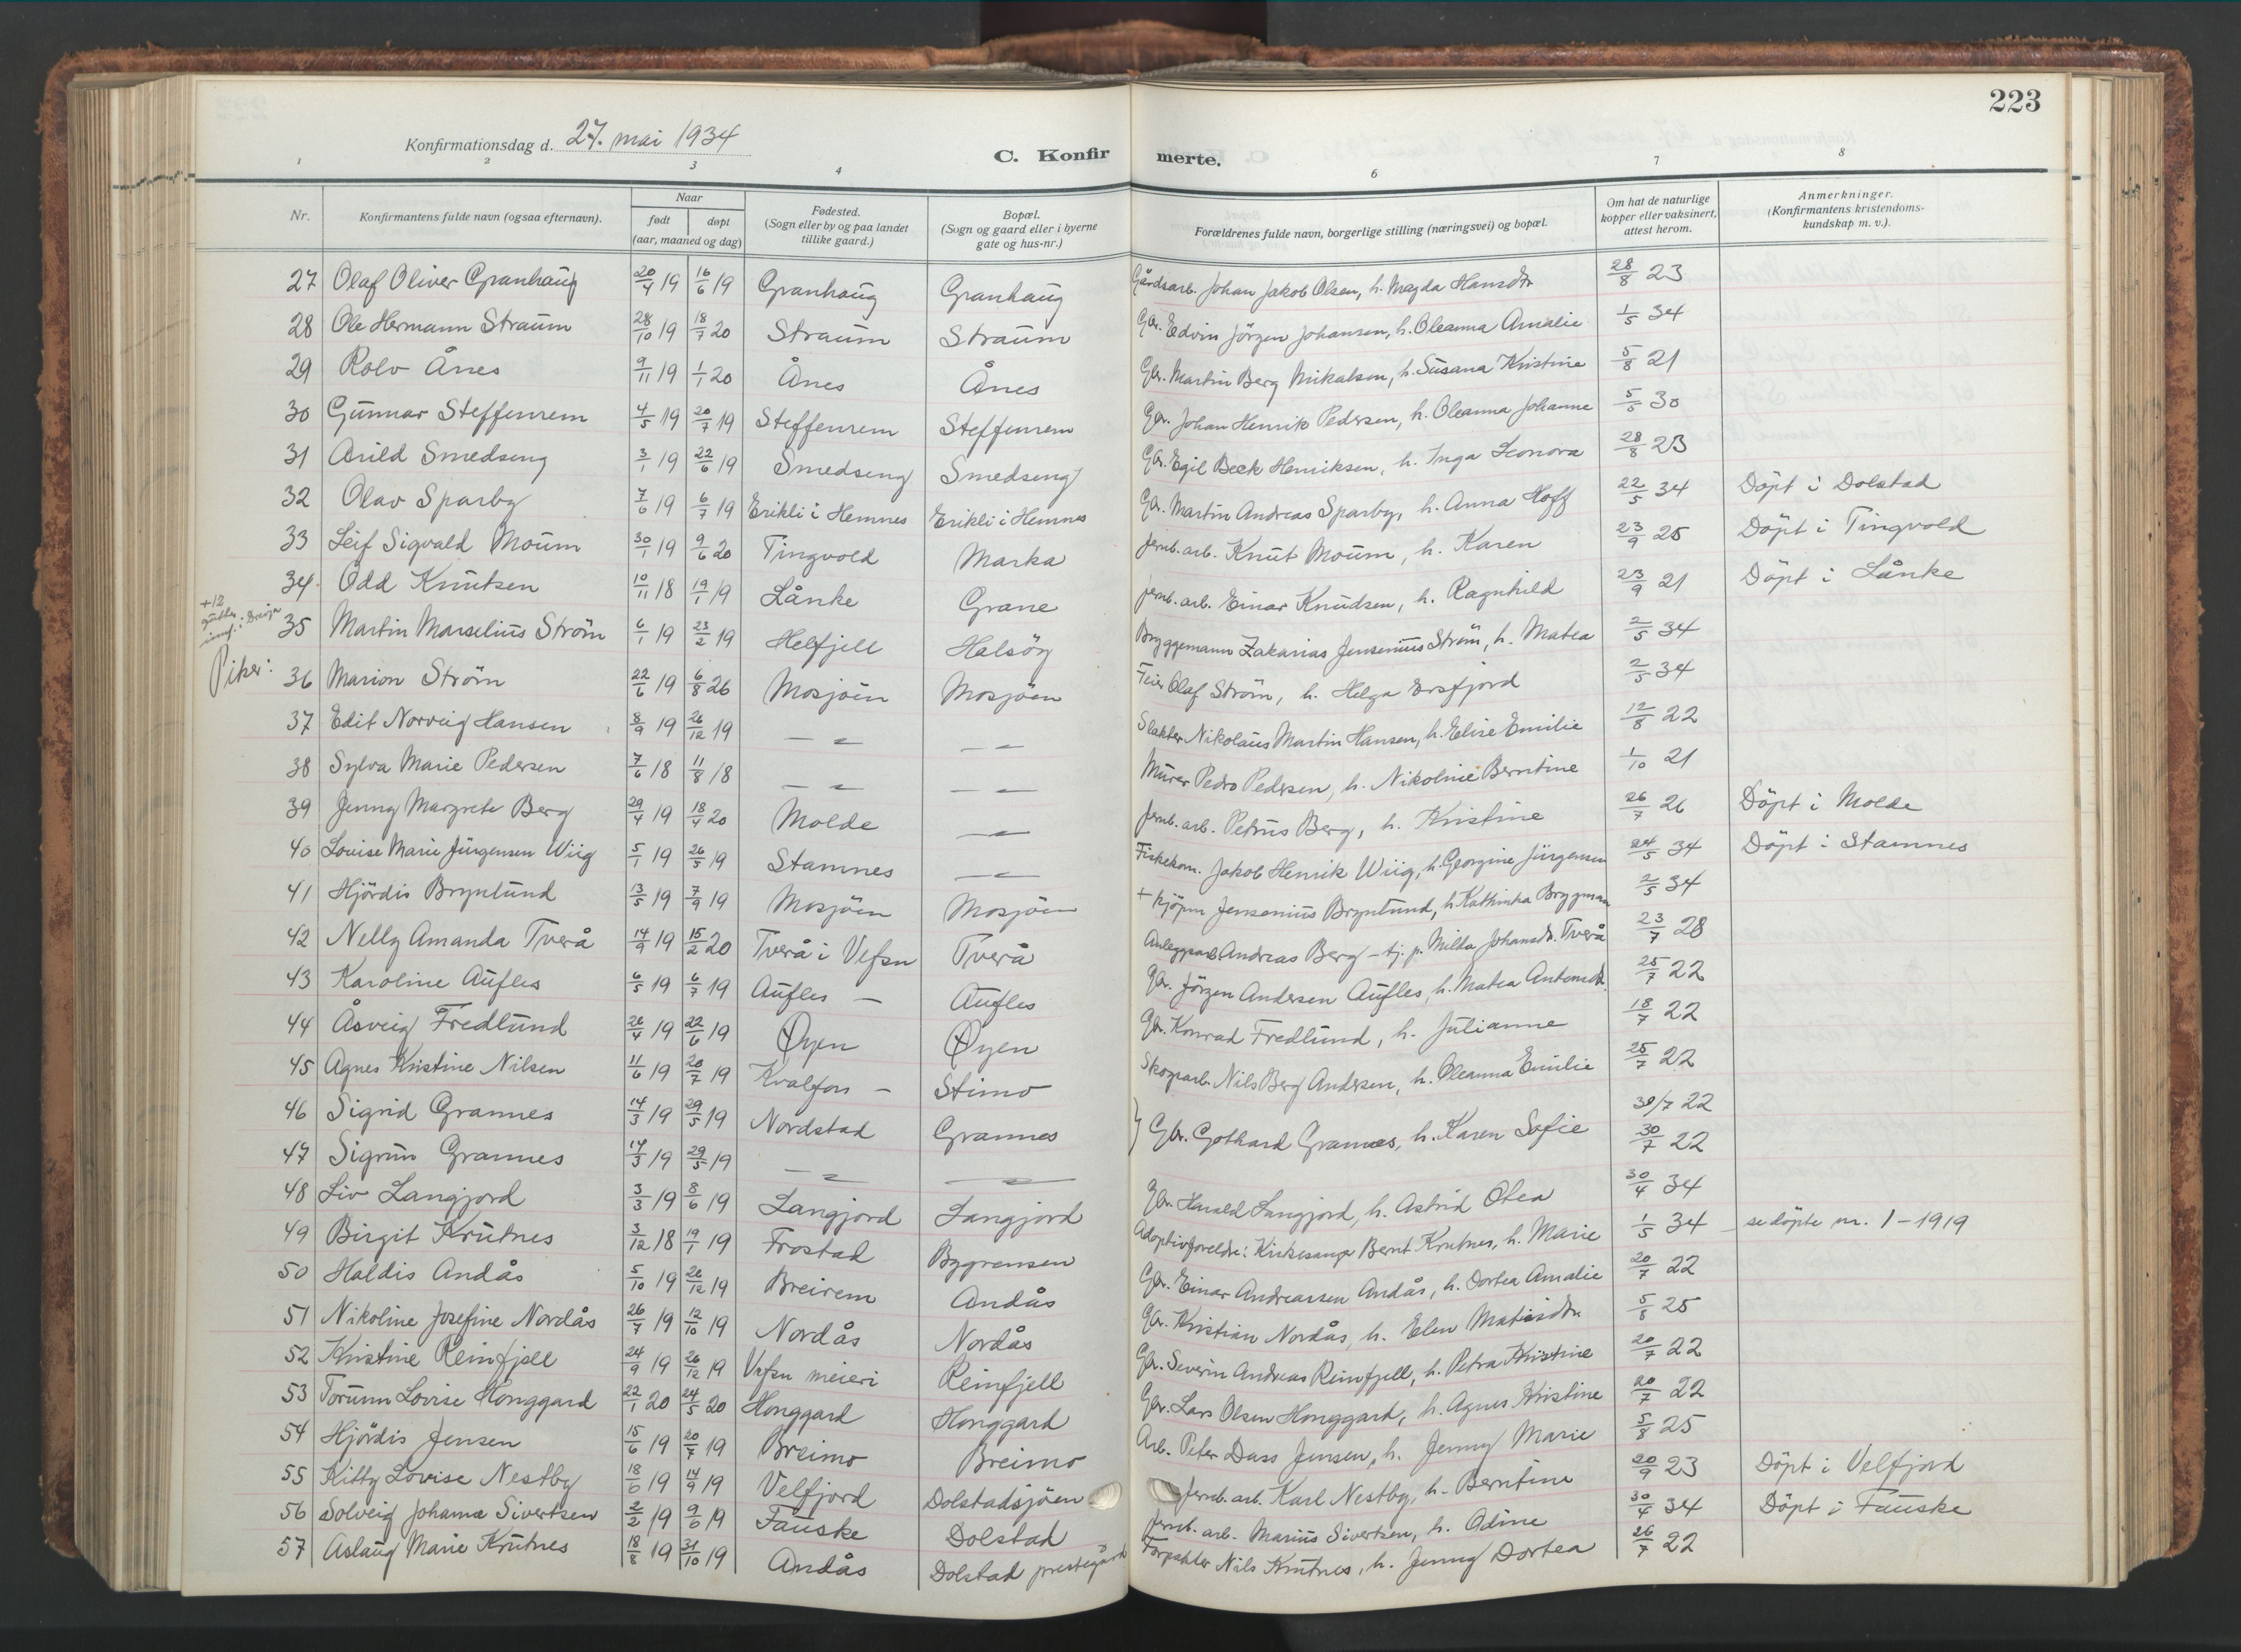 223
Konfirmationsdag d. 27. mai 1934
C. Konfirmerte.
1 2 3 4 6 7 8
Nr. Konfirmantens fulde navn (ogsaa efternavn). Naar født døpt (aar, maaned og dag) Fødested. (Sogn eller by og paa landet tillike gaard.) Bopæl. (Sogn og gaard eller i byerne gate og hus-nr.) Forældrenes fulde navn, borgerlige stilling (næringsvei) og bopæl. Om hat de naturlige kopper eller vaksinert, attest herom. Anmerkninger. (Konfirmantens kristendoms-kundskap m. v.).
27 Olaf Oliver Granhaug 20/4 19 16/6 19 Granhaug Granhaug Gårdsarb. Johan Jakob Olsen, h. Magda Hansdtr 28/8 23
28 Ole Hermann Straum 28/10 19 18/7 20 Straum Straum Gbr. Edvin Jörgen Johansen, h. Oleanna Amalie 1/5 34
29 Rolv Ånes 9/11 19 1/1 20 Ånes Ånes Gbr. Martin Berg Mikalsen, h. Susana Kristine 5/8 21
30 Gunnar Steffenrem 4/5 19 20/7 19 Steffenrem Steffenrem Gbr. Johan Henrik Pedersen, h. Oleanna Johanne 5/5 30
31 Arild Smedseng 3/1 19 22/6 19 Smedseng Smedseng Gbr. Egil Beck Henriksen, h. Inga Leonora 28/8 23
32 Olav Sparby 7/6 19 6/7 19 Erikli i Hemnes Erikli i Hemnes Gbr. Martin Andreas Sparby, h. Anna Hoff 22/5 34 Döpt i Dolstad
33 Leif Sigvald Moum 30/1 19 9/6 20 Tingvold Marka Jernb. arb. Knut Moum, h. Karen 23/9 25 Döpt i Tingvold
34 Odd Knutsen 10/11 18 19/1 19 Lånke Grane Jernb. arb. Einar Knudsen, h. Ragnhild 23/9 21 Döpt i Lånke
+12 gutter
35 Martin Marselius Ström 6/1 19 23/2 19 Helfjell Halsöy Bryggemann Zakarias Jensenius Ström, h. Matea 2/5 34
Piker:
36 Marion Ström 22/6 19 6/8 26 Mosjöen Mosjöen Feier Olaf Ström, h. Helga Ersfjord 2/5 34
37 Edit Norveig Hansen 8/9 19 26/12 19 — " — — " — Slakter Nikolaus Martin Hansen, h. Elise Emilie 12/8 22
38 Sylva Marie Pedersen 7/6 18 11/8 18 — " — — " — Murer Pedro Pedersen, h. Nikoline Berntine 1/10 21
39 Jenny Margrete Berg 29/4 19 18/4 20 Molde — " — Jernb. arb. Petrus Berg, h. Kristine 26/7 26 Döpt i Molde
40 Lovise Marie Jürgensen Wiig 5/1 19 26/5 19 Stamnes — " — Fiskekom. Jakob Henrik Wiig, h. Georgine Jürgensen 24/5 34 Döpt i Stamnes
41 Hjördis Bryntlund 13/5 19 7/9 19 Mosjöen Mosjöen + kjöpm Jensenius Bryntlund, h. Kathinka Bryggman 2/5 34
42 Nelly Amanda Tverå 14/9 19 15/2 20 Tverå i Vefsn Tverå Anleggsarb Andreas Berg – tj. p. Milda Johansdtr. Tverå 23/7 28
43 Karoline Aufles 6/5 19 6/7 19 Aufles — Aufles Gbr. Jörgen Andersen Aufles, h. Matea Antonsdtr. 25/7 22
44 Åsveig Fredlund 26/4 19 22/6 19 Øyen Øyen Gbr. Konrad Fredlund, h. Julianne 18/7 22
45 Agnes Kristine Nilsen 11/6 19 20/7 19 Kvalfors — Stimo Skogsarb. Nils Berg Andersen, h. Oleanna Emilie 25/7 22
46 Sigrid Grannes 14/3 19 29/5 19 Nordstad Grannes } Gbr. Gothard Grannes, h. Karen Sofie 30/7 22
47 Sigrun Grannes 14/3 19 29/5 19 — " — — " — 30/7 22
48 Liv Langjord 3/3 19 8/6 19 Langjord Langjord Gbr. Harald Langjord, h. Astrid Otea 30/4 34
49 Birgit Krutnes 3/12 18 19/1 19 Frostad Bygrensen Adoptivforeldre: Kirkesanger Bernt Krutnes, h. Marie 1/5 34 se döpte nr. 1 – 1919
50 Haldis Andås 5/10 19 26/12 19 Breirem Andås Gbr. Einar Andreassen Andås, h. Dortea Amalie 20/7 22
51 Nikoline Josefine Nordås 26/7 19 12/10 19 Nordås Nordås Gbr. Kristian Nordås, h. Elen Matisdtr 5/8 25
52 Kristine Reinfjell 24/9 19 26/12 19 Vefsn meieri Reinfjell Gbr. Severin Andreas Reinfjell, h. Petra Kristine 20/7 22
53 Torunn Lovise Honggard 22/1 20 24/5 20 Honggard Honggard Gbr. Lars Olsen Honggard, h. Agnes Kristine 20/7 22
54 Hjördis Jensen 15/6 19 20/7 19 Breimo Breimo Arb. Peter Dass Jensen, h. Jenny Marie 5/8 25
55 Kitty Lovise Nestby 18/6 19 14/9 19 Velfjord Dolstadsjöen Jernb. arb. Karl Nestby, h. Berntine 20/9 23 Döpt i Velfjord
56 Solveig Johanne Sivertsen 2/2 19 9/6 19 Fauske Dolstad Jernb. arb. Marius Sivertsen, h. Odine 30/4 34 Döpt i Fauske
57 Aslaug Marie Krutnes 18/8 19 31/10 19 Andås Dolstad prestegård Forpakter Nils Krutnes, h. Jenny Dortea 26/7 22